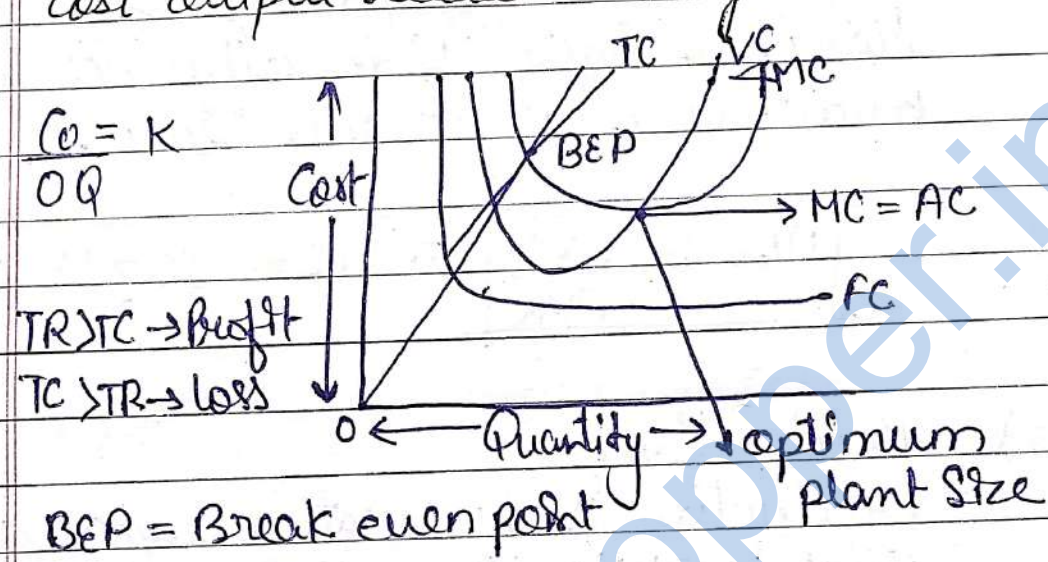 Cost output
TC
VC
MC
Co = K
OQ
Cost
BEP
MC = AC
FC
TR>TC → Profit
TC >TR→ loss
0 ← Quantity → optimum
plant Size
BEP = Break even point
opper.in